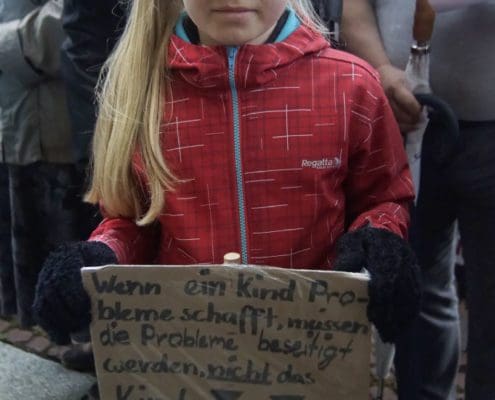 Regatta
Wenn ein Kind Pro-
bleme schafft, müssen
die Probleme beseitigt
werden, nicht das
Kind